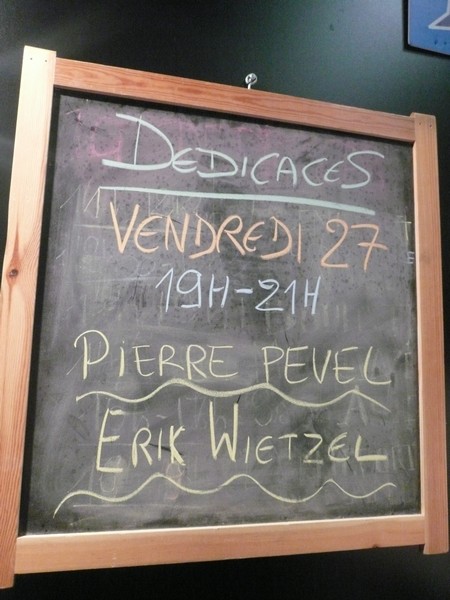 DEDICACES
VENDREDI 27
19H-21H
PIERRE PEVEL
ERIK WIETZEL